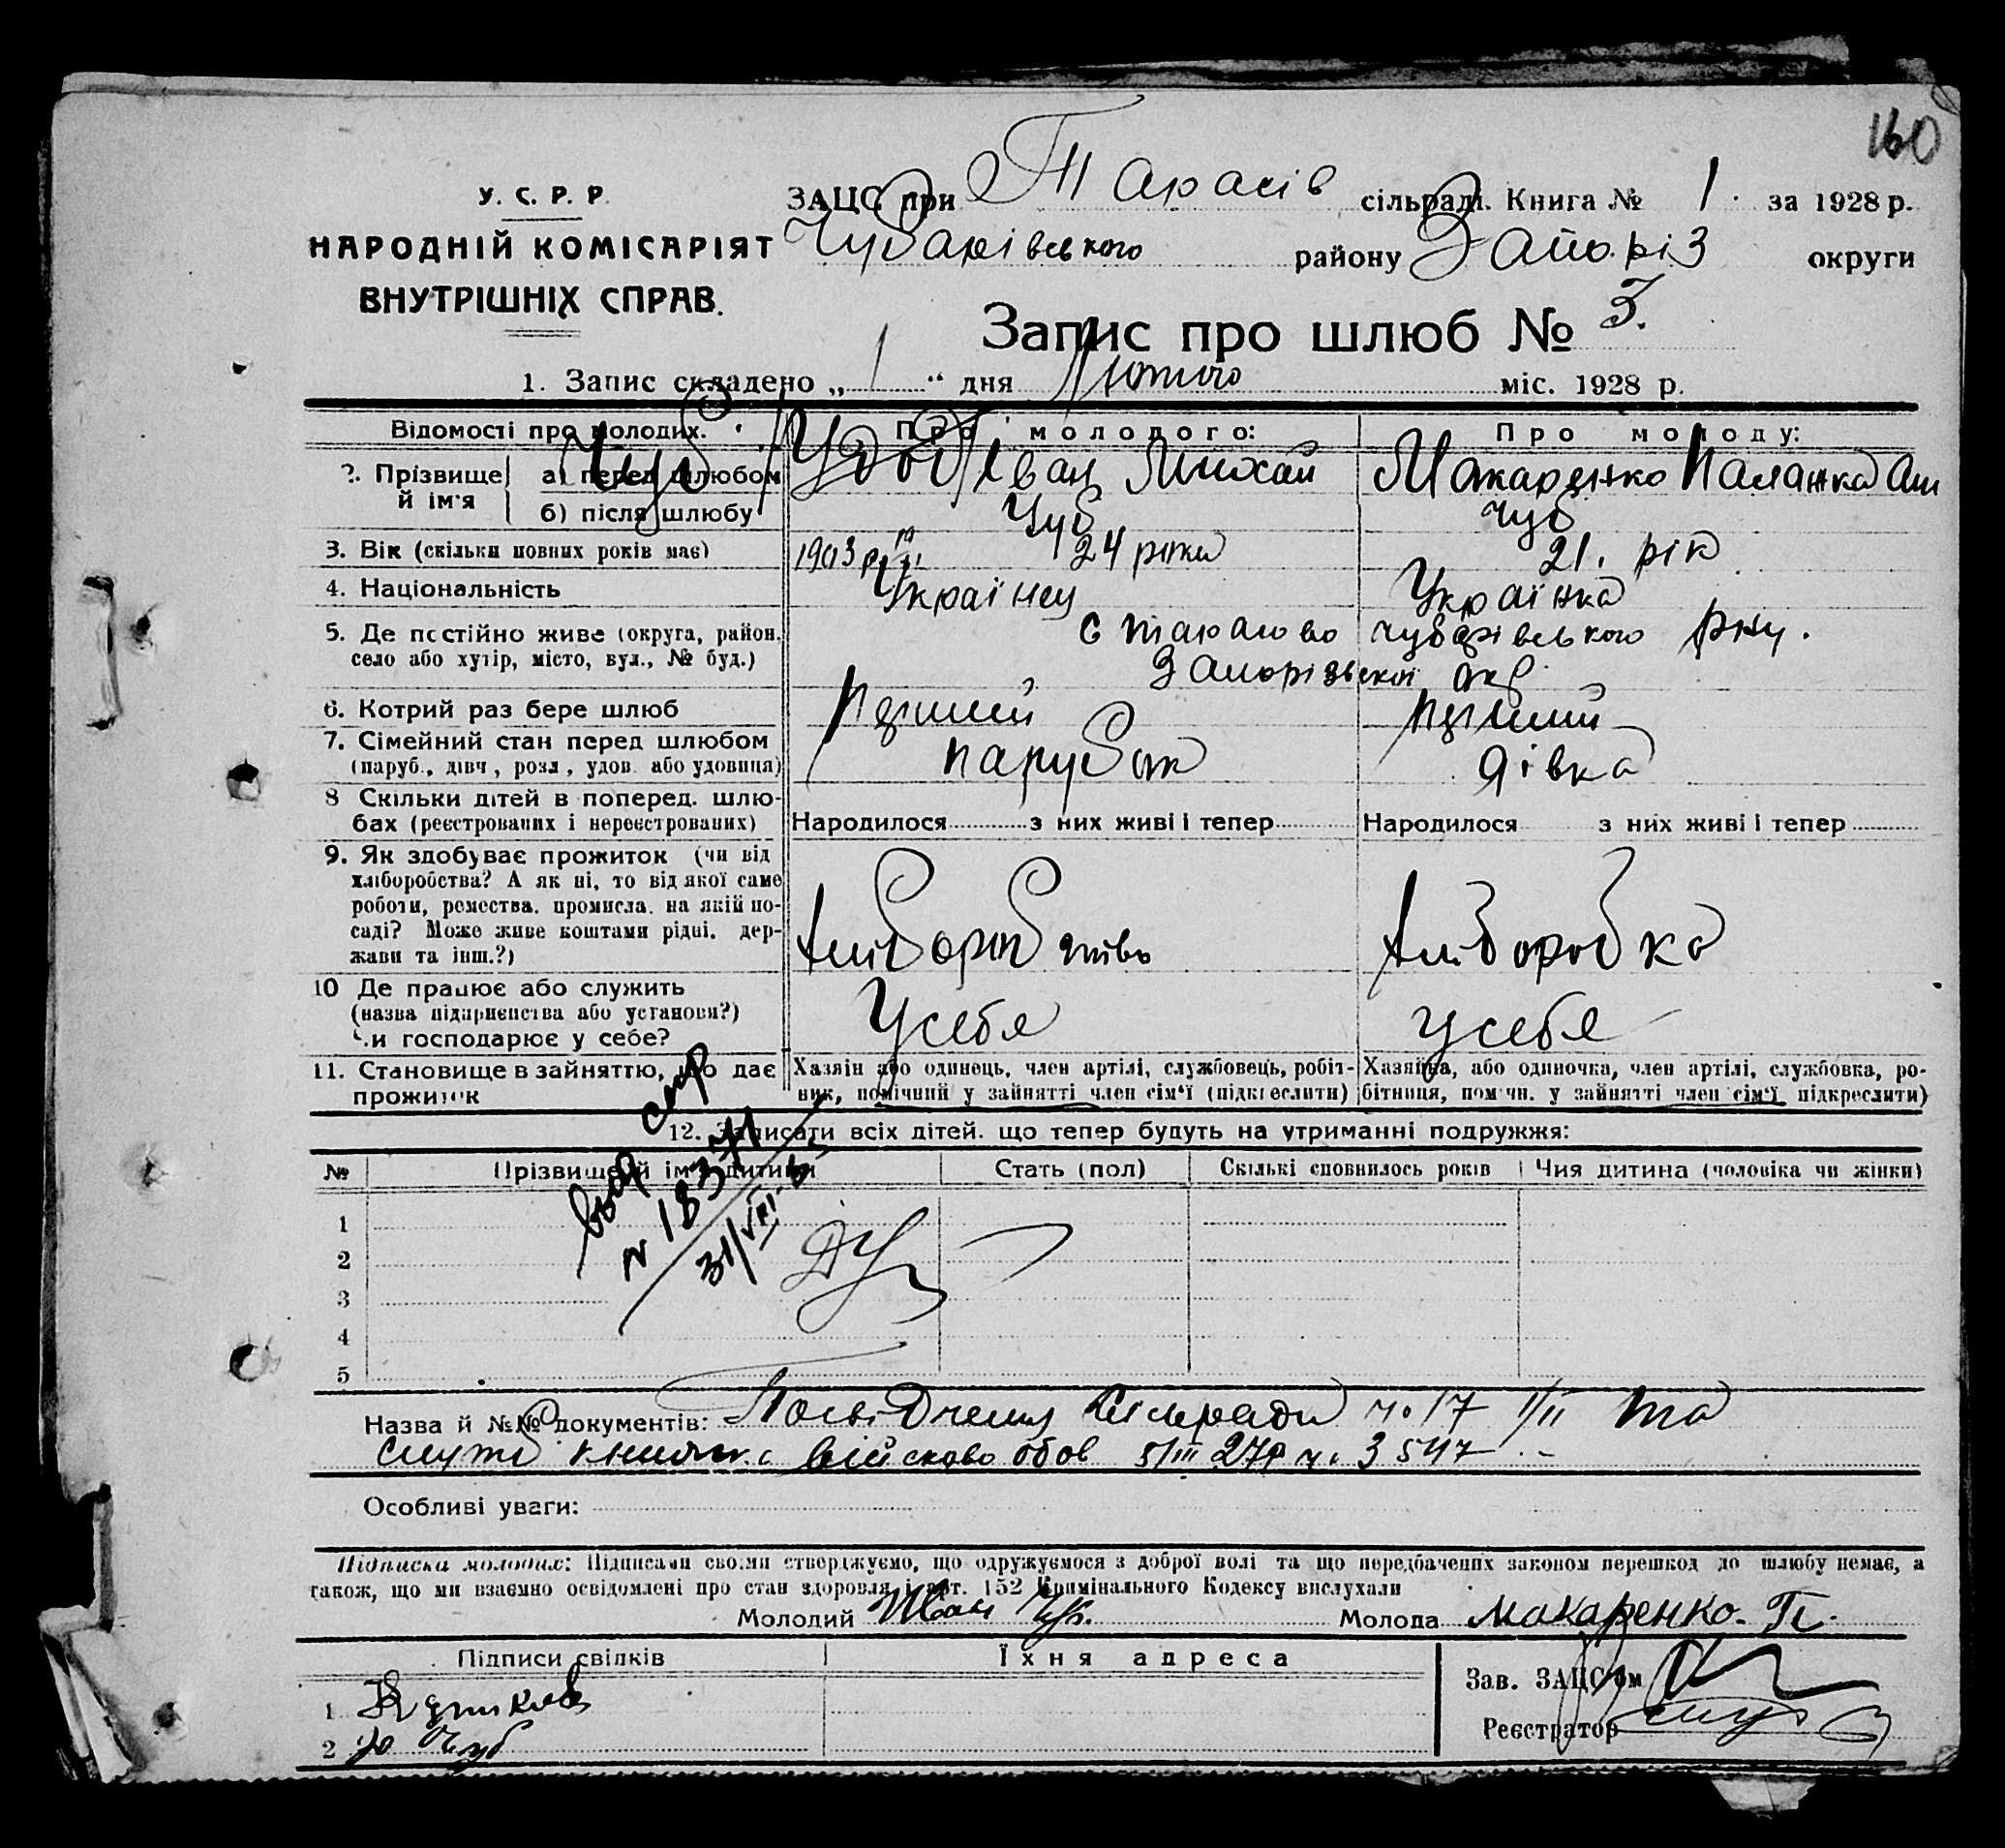 160
У. С. Р. Р.
НАРОДНІЙ КОМІСАРІЯТ
ВНУТРІШНІХ СПРАВ.
ЗАЦС при Тарасів сільраді. Книга № 1. за 1928 р.
Чубарівського району Запоріз округи
Запис про шлюб № 3.
1. Запис складено „ 1 “ дня Лютого міс. 1928 р.
Відомості про молодих. Про молодого: Про молоду:
2. Прізвище й ім'я
а) перед шлюбом Чуб Іван Михай Макаренко Палажка
б) після шлюбу Чуб Чуб
3. Вік (скільки повних років має) 1903 р. 24 роки 21. рік
4. Національність Українец Українка
5. Де постійно живе (округа, район, с Тарасово Чубарівського рну.
село або хутір, місто, вул., № буд.) Запорізької окр
6. Котрий раз бере шлюб Перший перший
7. Сімейний стан перед шлюбом парубок дівка
(паруб., дівч, розл, удов. або удовиця)
8 Скільки дітей в поперед. шлю-
бах (реєстрованих і нереєстрованих) Народилося з них живі і тепер Народилося з них живі і тепер
9. Як здобуває прожиток (чи від
хліборобства? А як ні, то від якої саме
роботи, ремества, промисла, на якій по-
саді? Може живе коштами рідні, дер-
жави та інш.?) хліборобство хліборобка
10 Де працює або служить
(назва підприємства або установи?)
Чи господарює у себе? У себе у себе
11. Становище в зайняттю, що дає
прожиток
Хазяін або одинець, член артілі, службовець, робіт-
ник, помічний у зайнятті член сім'ї (підкреслити)
Хазяйка, або одиночка, член артілі, службовка, ро-
бітниця, помічн. у зайнятті член сім'ї підкреслити)
12. Записати всіх дітей, що тепер будуть на утриманні подружжя:
№ Прізвище й ім'я дитини Стать (пол) Скількі сповнилось років Чия дитина (чоловіка чи жінки)
1
2
3
4
5
Назва й №№ документів: Посвідчення Сільради ч. 17 1/II та
служб книжк. військово обов 5/III 27р ч. 3547
Особливі уваги:
Підписка молодих: Підписами своіми стверджуємо, що одружуємося з доброї волі та що передбачених законом перешкод до шлюбу немає, а
також, що ми взаємно освідомлені про стан здоровля і арт. 152 Кримінального Кодексу вислухали
Молодий Іван Чуб. Молода Макаренко. П.
Підписи свідків Їхня адреса
Зав. ЗАЦС'ом
Реєстратор
1
2 Чуб